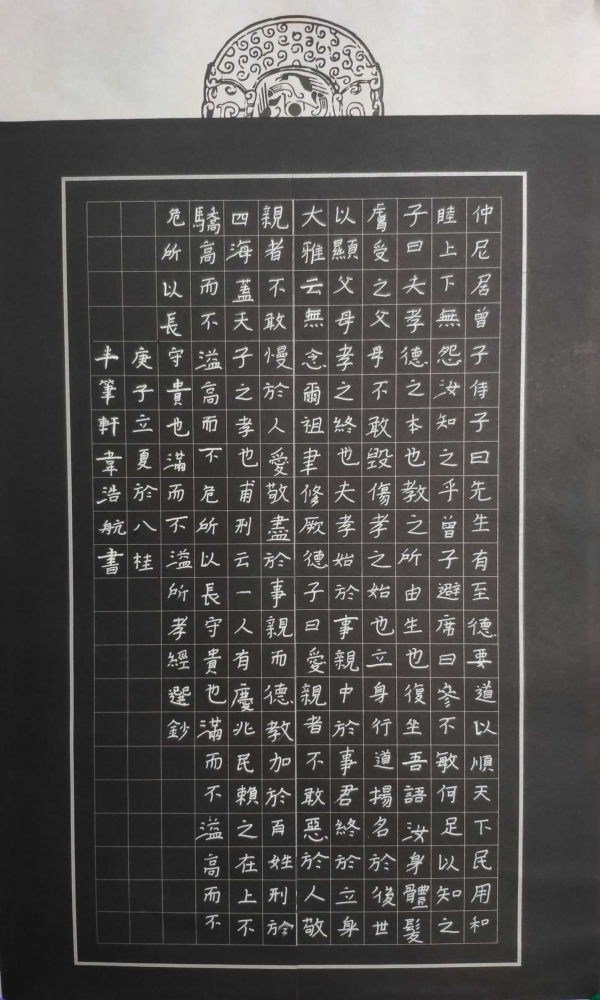 仲尼居曾子侍子曰先生有至德要道以順天下民用和
睦上下無怨汝知之乎曾子避席曰參不敏何足以知之
子曰夫孝德之本也教之所由生也復坐吾語汝身體髮
膚受之父母不敢毀傷孝之始也立身行道揚名於後世
以顯父母孝之終也夫孝始於事親中於事君終於立身
大雅云無念爾祖聿修厥德子曰愛親者不敢惡於人敬
親者不敢慢於人愛敬盡於事親而德教加於百姓刑於
四海蓋天子之孝也甫刑云一人有慶兆民賴之在上不
驕高而不溢高而不危所以長守貴也滿而不溢高而不
危所以長守貴也滿而不溢所孝經選鈔
庚子立夏於八桂
半筆軒韋浩航書